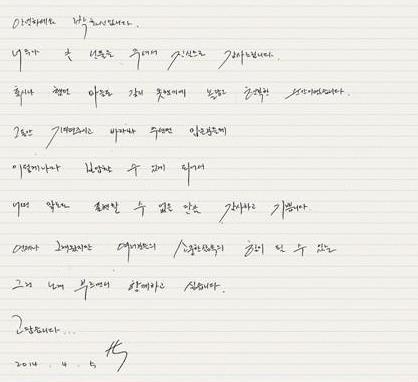 안녕하세요 박효신입니다.
너무나 큰 선물을 주셔서 진심으로 감사드립니다.
혹시나 했던 마음도 갖지 못했기에 놀랍고 행복한 순간이었습니다.
그동안 기다려주시고 바라봐 주셨던 많은분들께
이렇게나마 보답할 수 있게 되어서
어떤 말로도 표현할 수 없을 만큼 감사하고 기쁩니다.
언제나 그래왔지만 여러분들의 소중한 삶의 힘이 될 수 있는
그런 노래 부르면서 함께하고 싶습니다.
고맙습니다...
2014. 4. 5